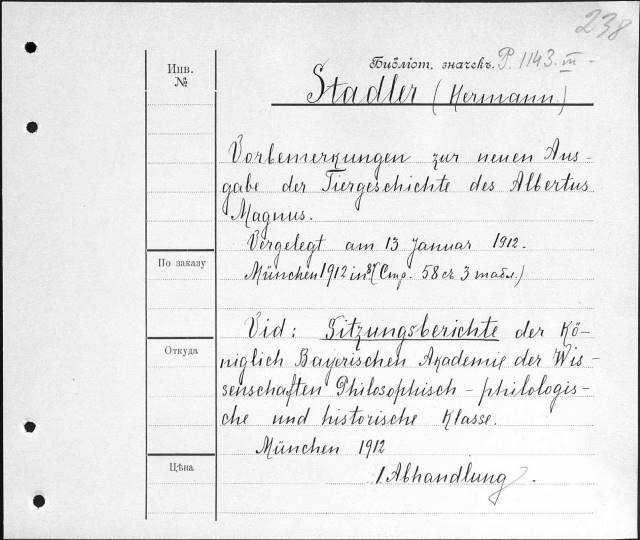 238
Библіот. значекъ. P. 1143. III -
Инв.
№
Stadler (Hermann)
Vorbemerkungen zur neuen Aus-
gabe der Tiergeschichte des Albertus
Magnus.
Vergelegt am 13 Januar 1912.
По заказу
München 1912 in 8° (Стр. 58 съ 3 табл.)
Vid: Sitzungsberichte der Kö-
Откуда
niglich Bayerischen Akademie der Wis-
senschaften Philosophisch-philologis-
che und historische Klasse.
München 1912
Цѣна
1 Abhandlung.